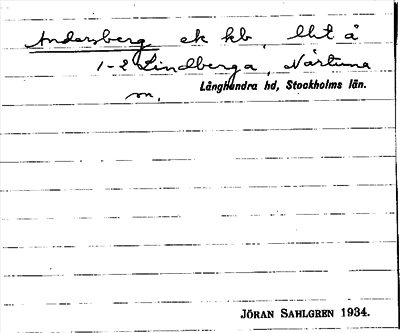 Andersberg ek kb, lht å
1-2 Lindberga, Närtuna
sn, Långhundra hd, Stockholms län.
JÖRAN SAHLGREN 1934.